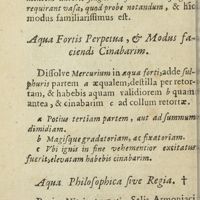 requirant vasa, quod probe notandum, & hic
modus familiarissimus est.
Aqua Fortis Perpetua, & Modus fa-
ciendi Cinabarim.
Dissolve Mercurium in aqua forti, adde sul-
phuris partem a æqualem, destilla per retor-
tam, & habebis aquam validiorem b quam
antea, & cinabarim c ad collum retortæ.
a Potius tertiam partem, aut ad summum
dimidiam.
b Magisque gradatoriam, ac fixatoriam.
c Vbi ignis in fine vehementior excitatus
fuerit, elevatam habebis cinabarim.
Aqua Philosophica sive Regia. †
Salis Armoniaci